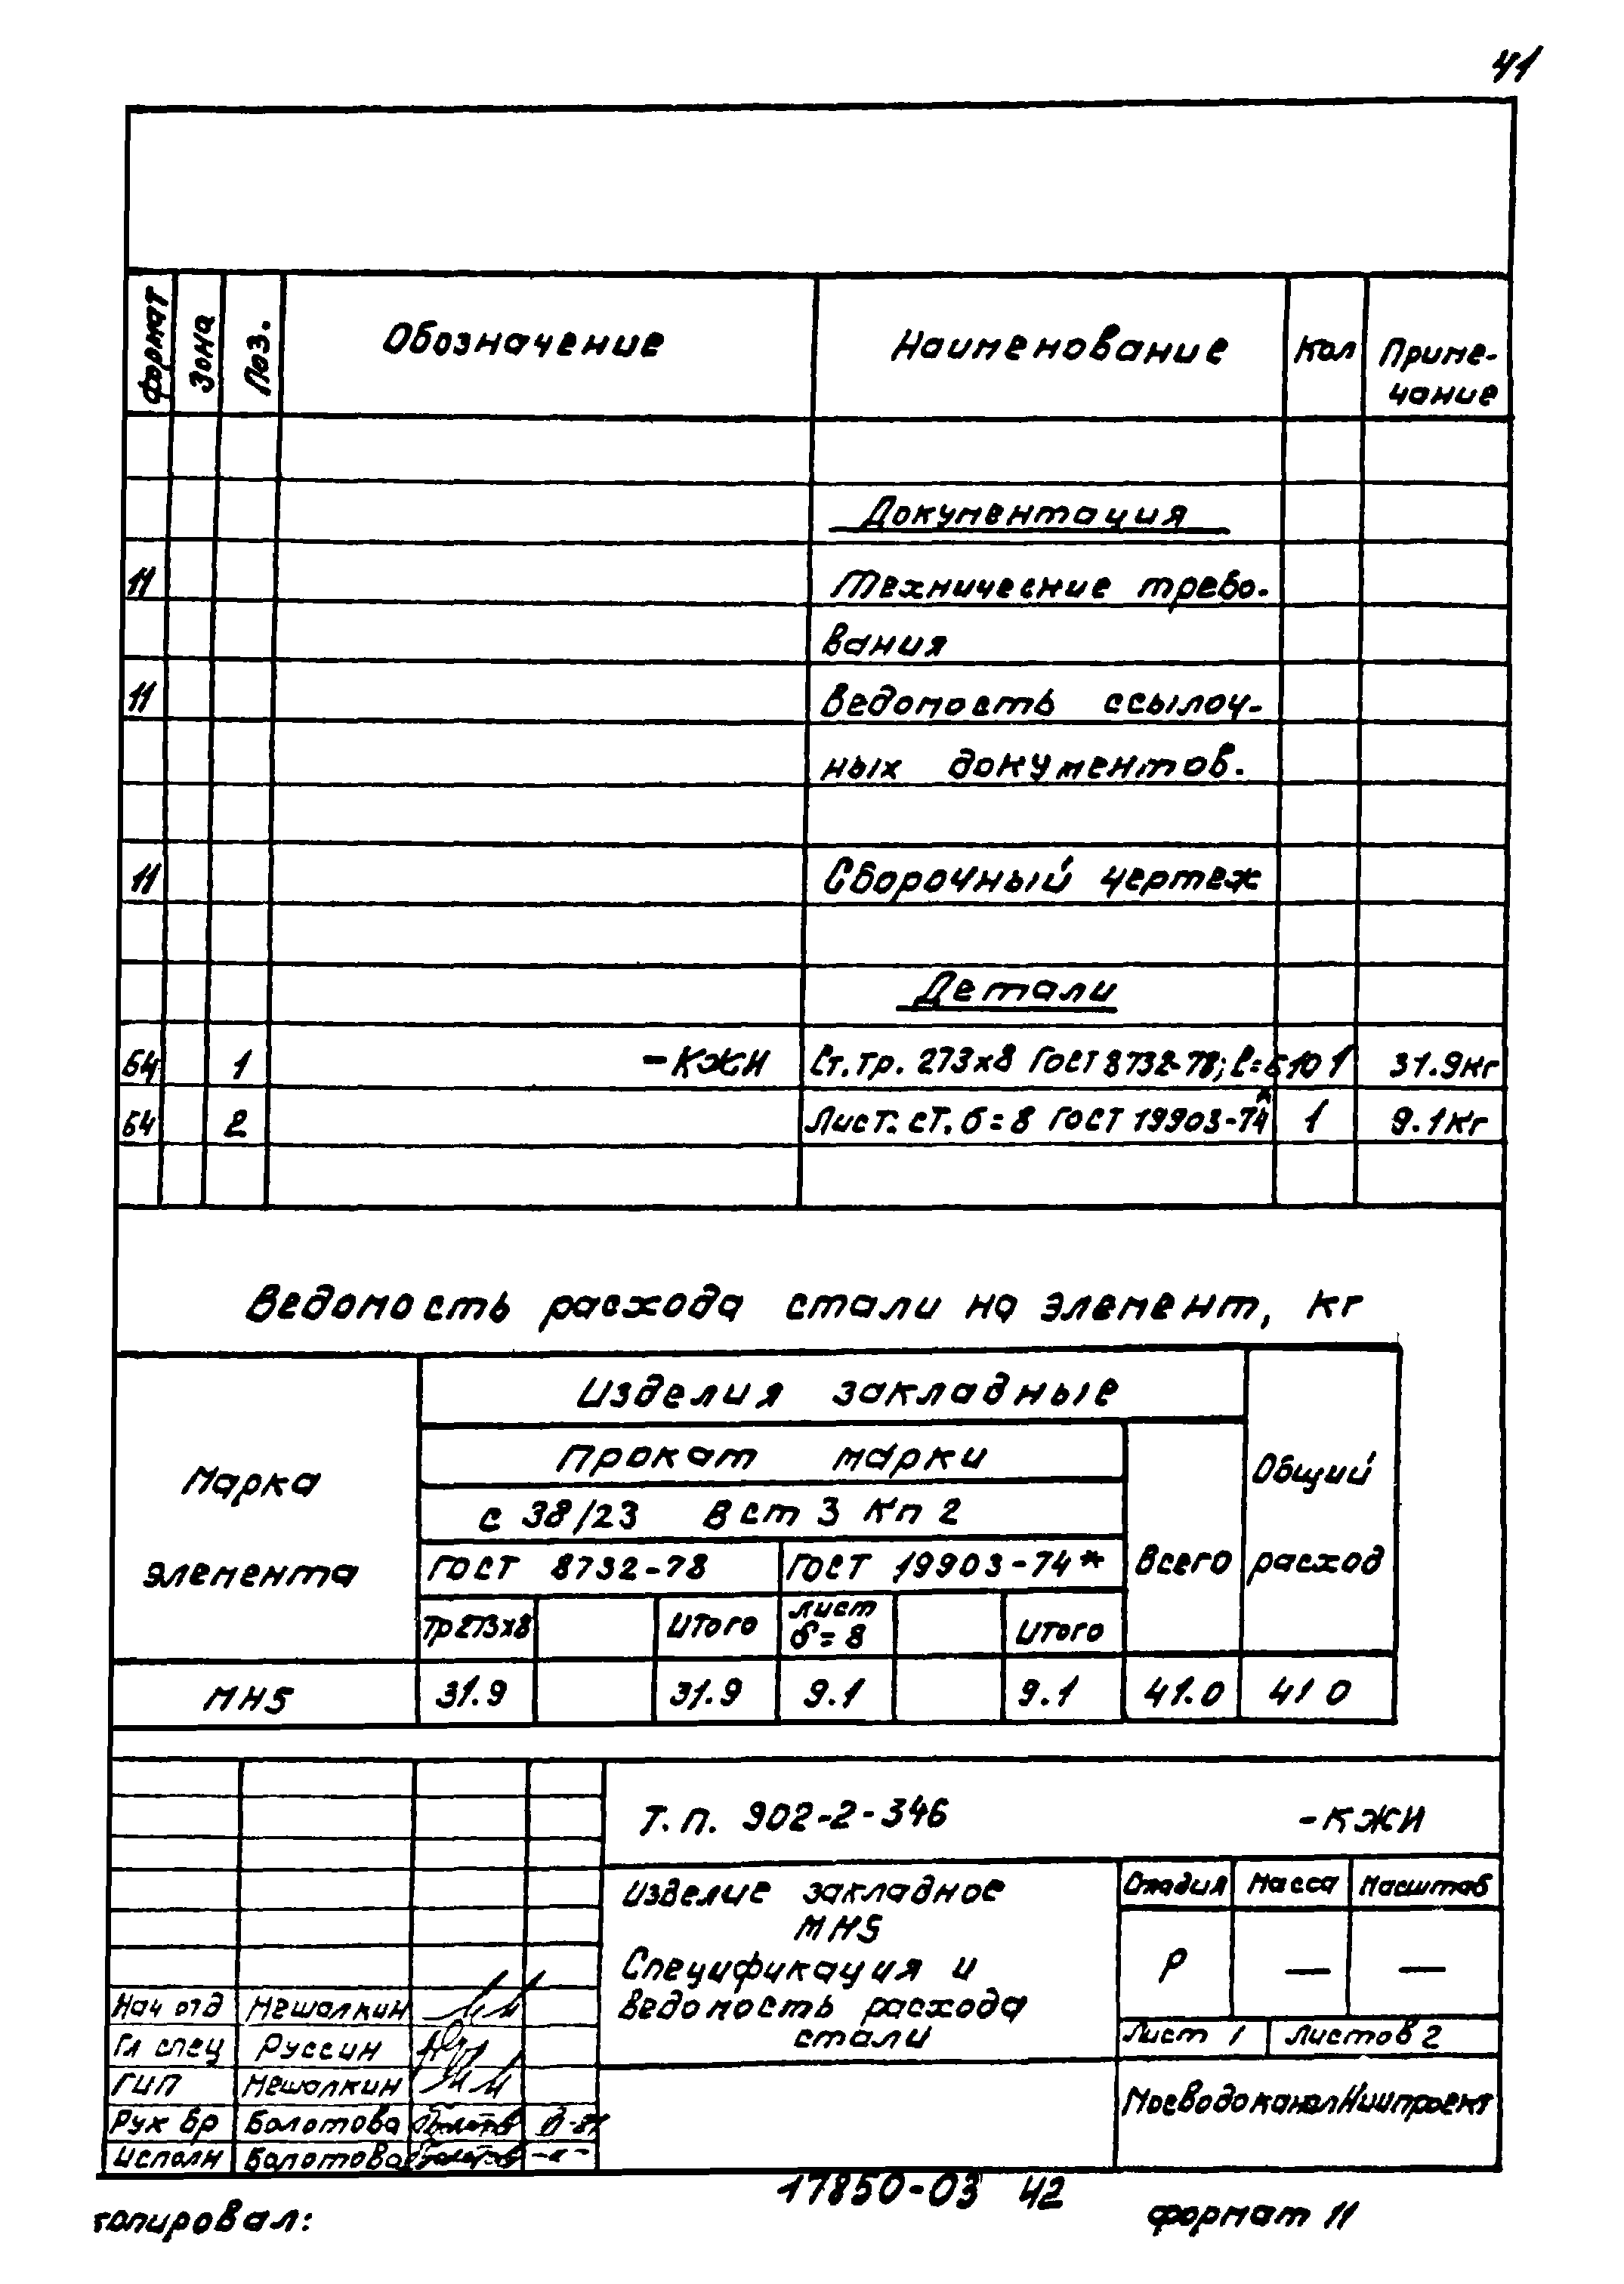 41
формат Зона Поз. Обозначение Наименование Кол Приме-
чание
Документация
11 Технические требо-
вания
11 Ведомость ссылоч-
ных документов.
11 Сборочный чертеж
Детали
Б4 1 -КЖИ Ст. тр. 273х8 ГОСТ 8732-78; ℓ=610 1 31.9кг
Б4 2 Лист. ст. б=8 ГОСТ 19903-74* 1 9.1кг
Ведомость расхода стали на элемент, кг
Марка
элемента
Изделия закладные
Прокат марки
с 38/23 Вст 3 кп 2
ГОСТ 8732-78 ГОСТ 19903-74* Всего
Общий
расход
тр 273х8 Итого лист
б=8 Итого
МН5 31.9 31.9 9.1 9.1 41.0 41 0
Т.п. 902-2-346 -КЖИ
Изделие закладное
МН5
Спецификация и
ведомость расхода
стали
Стадия Масса Масштаб
Р — —
Лист 1 Листов 2
МосводоканалНиипроект
Нач отд Мешалкин
Гл спец Руссин
ГИП Мешалкин
Рук бр Болотова
Исполн Болотова
17850-03 42
копировал: формат 11